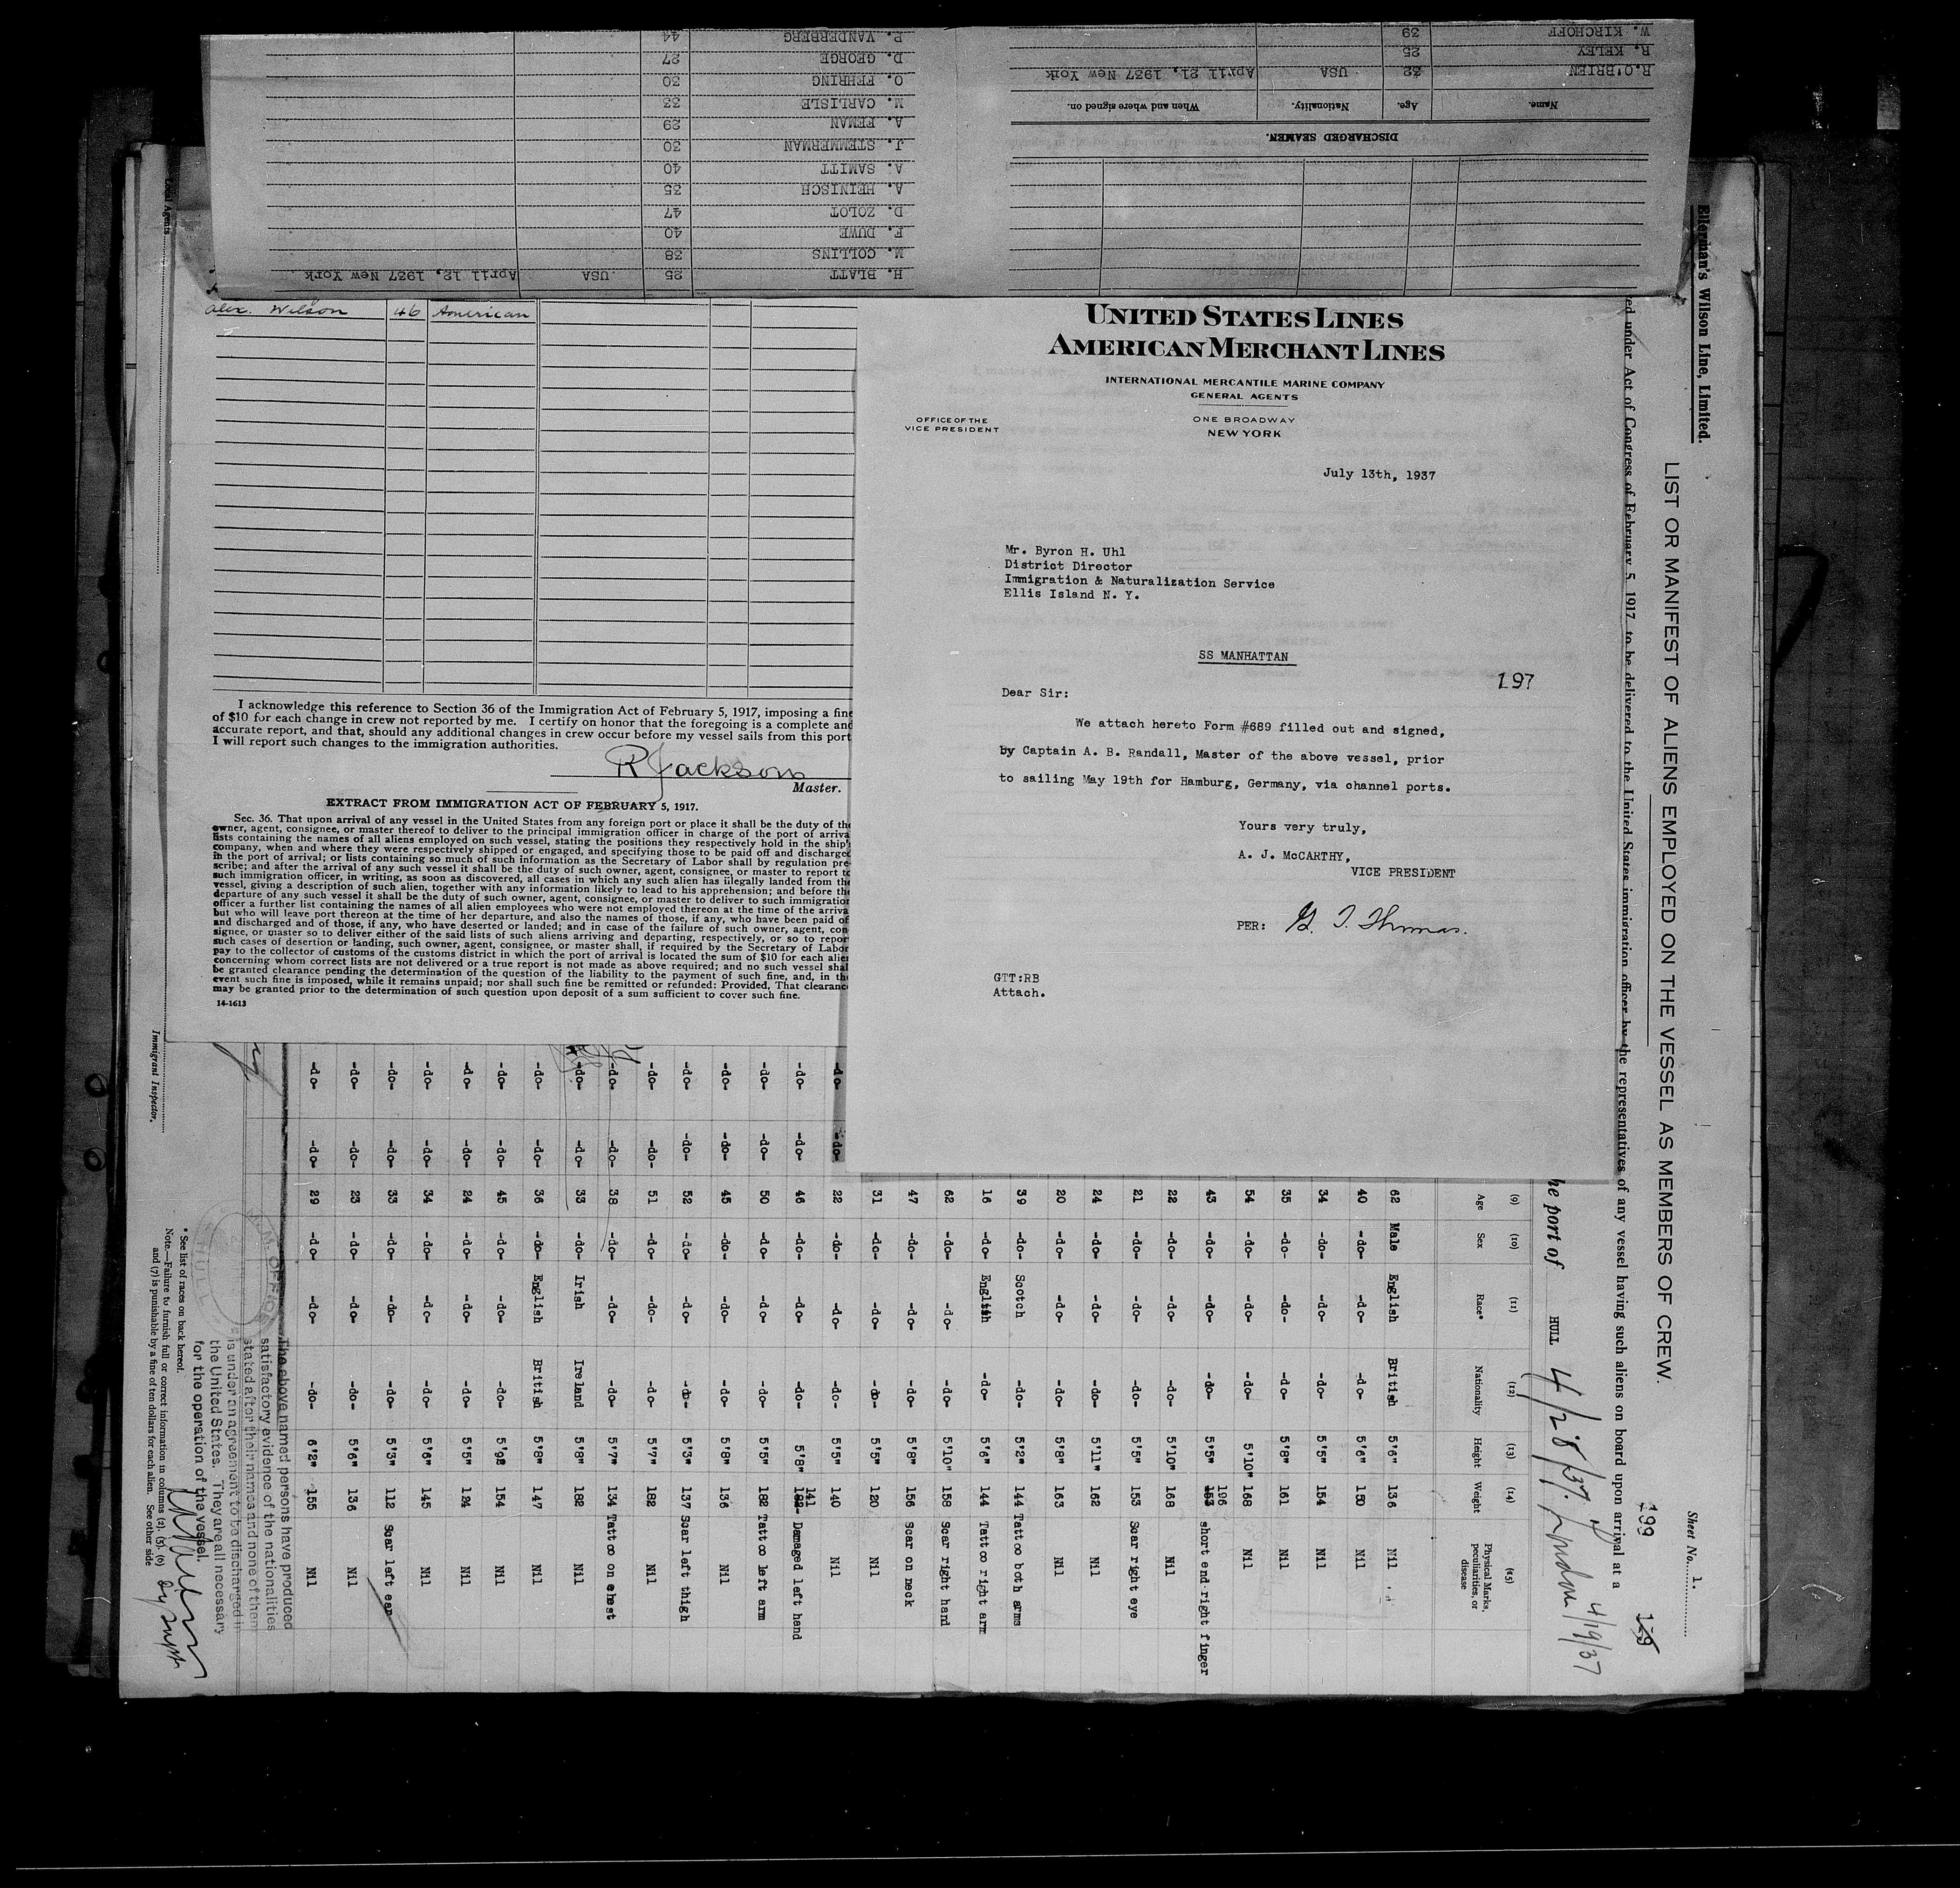 P. VANDERBERG 44
D. GEORGE 27
O. FEHRING 30
M. CARLISLE 33
A. FEMAN 29
J. STEMMERMAN 30
A. SAMITT 40
A. HEINISCH 35
D. ZOLOT 47
F. DUWE 40
M. COLLINS 38
H. BLATT 25 USA April 12, 1937 New York
DISCHARGED SEAMEN.
Name. Age. Nationality. When and where signed on.
R.O'BRIEN 32 USA April 21, 1937 New York
R. KELEY 25
W. KIRCHOFF 39
Alex. Wilson 46 American
I acknowledge this reference to Section 36 of the Immigration Act of February 5, 1917, imposing a fine
of $10 for each change in crew not reported by me. I certify on honor that the foregoing is a complete and
accurate report, and that, should any additional changes in crew occur before my vessel sails from this port
I will report such changes to the immigration authorities.
R Jackson
Master.
EXTRACT FROM IMMIGRATION ACT OF FEBRUARY 5, 1917.
Sec. 36. That upon arrival of any vessel in the United States from any foreign port or place it shall be the duty of the
owner, agent, consignee, or master thereof to deliver to the principal immigration officer in charge of the port of arriva
lists containing the names of all aliens employed on such vessel, stating the positions they respectively hold in the ship's
company, when and where they were respectively shipped or engaged, and specifying those to be paid off and discharged
in the port of arrival; or lists containing so much of such information as the Secretary of Labor shall by regulation pre-
scribe; and after the arrival of any such vessel it shall be the duty of such owner, agent, consignee, or master to report to
such immigration officer, in writing, as soon as discovered, all cases in which any such alien has illegally landed from the
vessel, giving a description of such alien, together with any information likely to lead to his apprehension; and before the
departure of any such vessel it shall be the duty of such owner, agent, consignee, or master to deliver to such immigration
officer a further list containing the names of all alien employees who were not employed thereon at the time of the arriva
but who will leave port thereon at the time of her departure, and also the names of those, if any, who have been paid of
and discharged and of those, if any, who have deserted or landed; and in case of the failure of such owner, agent, con
signee, or master so to deliver either of the said lists of such aliens arriving and departing, respectively, or so to repor
such cases of desertion or landing, such owner, agent, consignee, or master shall, if required by the Secretary of Labor
pay to the collector of customs of the customs district in which the port of arrival is located the sum of $10 for each alie
concerning whom correct lists are not delivered or a true report is not made as above required; and no such vessel shal
be granted clearance pending the determination of the question of the liability to the payment of such fine, and, in the
event such fine is imposed, while it remains unpaid; nor shall such fine be remitted or refunded: Provided, That clearance
may be granted prior to the determination of such question upon deposit of a sum sufficient to cover such fine.
14-1613
UNITED STATES LINES
AMERICAN MERCHANT LINES
INTERNATIONAL MERCANTILE MARINE COMPANY
GENERAL AGENTS
OFFICE OF THE
VICE PRESIDENT
ONE BROADWAY
NEW YORK
July 13th, 1937
Mr. Byron H. Uhl
District Director
Immigration & Naturalization Service
Ellis Island N. Y.
SS MANHATTAN
197
Dear Sir:
We attach hereto Form #689 filled out and signed,
by Captain A. B. Randall, Master of the above vessel, prior
to sailing May 19th for Hamburg, Germany, via channel ports.
Yours very truly,
A. J. McCARTHY,
VICE PRESIDENT
PER: G. T. Thomas.
GTT:RB
Attach.
Ellerman's Wilson Line, Limited.
Sheet No. 1.
LIST OR MANIFEST OF ALIENS EMPLOYED ON THE VESSEL AS MEMBERS OF CREW.
199
129
ed under Act of Congress of February 5, 1917, to be delivered to the United States immigration officer by the representatives of any vessel having such aliens on board upon arrival at a
he port of HULL 4/28/37. London 4/19/37
(9) (10) (11) (12) (13) (14) (15)
Age Sex Race* Nationality Height Weight Physical Marks, peculiarities, or disease
62 Male English British 5'6" 136 Nil
40 -do- -do- -do- 5'6" 150 Nil
34 -do- -do- -do- 5'5" 154 Nil
35 -do- -do- -do- 5'8" 161 Nil
54 -do- -do- -do- 5'10" 168 Nil
43 -do- -do- -do- 5'5" 153 196 short end right finger
22 -do- -do- -do- 5'10" 168 Nil
21 -do- -do- -do- 5'5" 153 Scar right eye
24 -do- -do- -do- 5'11" 162 Nil
20 -do- -do- -do- 5'8" 163 Nil
39 -do- Scotch -do- 5'2" 144 Tattoo both arms
16 -do- English -do- 5'6" 144 Tattoo right arm
62 -do- -do- -do- 5'10" 158 Scar right hand
47 -do- -do- -do- 5'8" 156 Scar on neck
31 -do- -do- -do- 5'5" 120 Nil
-do- -do- 22 -do- -do- -do- 5'5" 140 Nil
-do- -do- 46 -do- -do- -do- 5'8" 141 Damaged left hand
-do- -do- 50 -do- -do- -do- 5'5" 182 Tattoo left arm
-do- -do- 45 -do- -do- -do- 5'8" 136 Nil
-do- -do- 52 -do- -do- -do- 5'3" 137 Scar left thigh
-do- -do- 51 -do- -do- -do- 5'7" 182 Nil
-do- -do- 38 -do- -do- -do- 5'7" 134 Tattoo on chest
-do- -do- 33 -do- Irish Ireland 5'8" 182 Nil
-do- -do- 36 -do- English British 5'8" 147 Nil
-do- -do- 45 -do- -do- -do- 154 Nil
-do- -do- 24 -do- -do- -do- 5'5" 124 Nil
-do- -do- 34 -do- -do- -do- 5'6" 145 Nil
-do- -do- 33 -do- -do- -do- 5'3" 112 Scar left ear
-do- -do- 23 -do- -do- -do- 5'6" 136 Nil
-do- -do- 29 -do- -do- -do- 6'2" 155 Nil
The above named persons have produced
satisfactory evidence of the nationalities
stated after their names and none of them
is under an agreement to be discharged in
the United States. They are all necessary
for the operation of the vessel.
IMM. OFFICE
HULL
* See list of races on back hereof.
Note.—Failure to furnish full or correct information in columns (2), (5), (6)
and (7) is punishable by a fine of ten dollars for each alien. See other side
Local Agents
Immigrant Inspector.